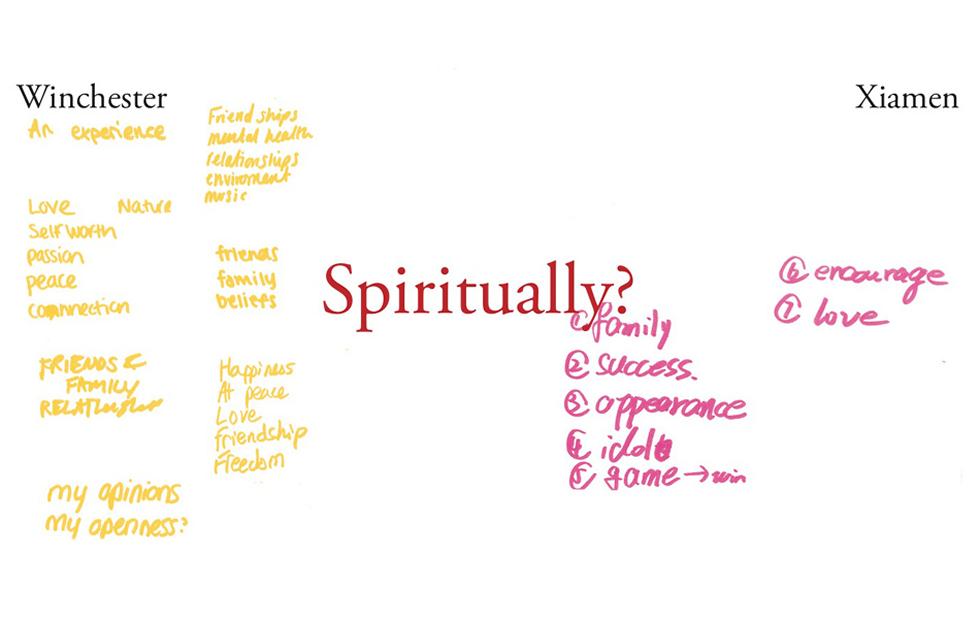 Winchester
An experience
Love Nature
Self worth
passion
peace
connnection
FRIENDS &
FAMILY
RELATIONSHIP
my opinions
My openness?
Friendships
mental health
relationships
enviroment
music
friends
family
beliefs
Happiness
At peace
Love
Friendship
Freedom
Spiritually?
Xiamen
① family
② success.
③ appearance
④ idol
⑤ game → win
⑥ encourage
⑦ love